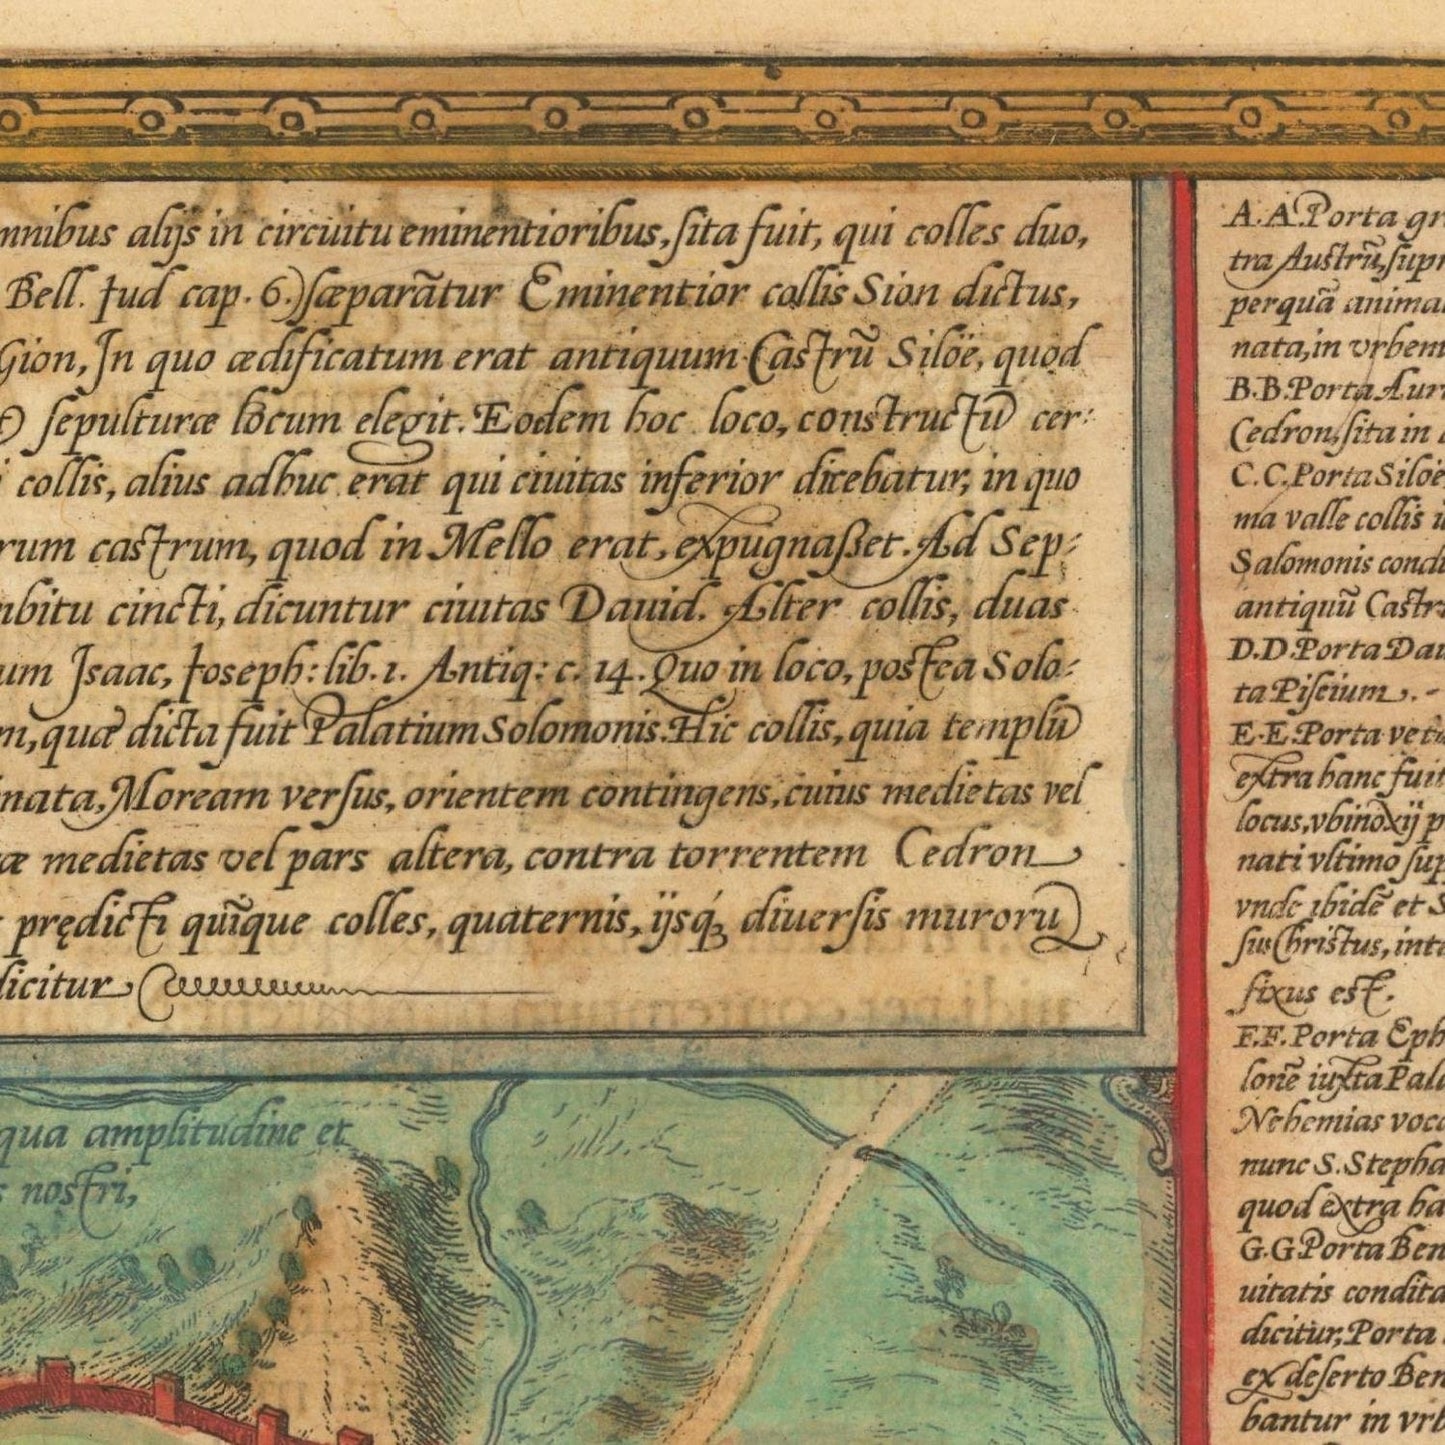 mnibus alijs in circuitu eminentioribus, sita fuit, qui colles duo,
Bell. Iud cap. 6.) sæparãtur Eminentior collis Sion dictus,
Gion, In quo ædificatum erat antiquum Castrũ Siloë, quod
sepulturæ locum elegit. Eodem hoc loco, constructũ cer:
collis, alius adhuc erat qui ciuitas inferior dicebatur, in quo
rum castrum, quod in Mello erat, expugnaßet. Ad Sep-
mbitu cincti, dicuntur ciuitas Dauid. Alter collis, duas
um Isaac, Ioseph: lib. 1. Antiq: c. 14. Quo in loco, postea Solo-
m, quæ dicta fuit Palatium Solomonis. Hic collis, quia templũ
nata, Moream versus, orientem contingens, cuius medietas vel
æ medietas vel pars altera, contra torrentem Cedron
prędicti quĩque colles, quaternis, ijsq́; diuersis murorũ
dicitur
qua amplitudine et
s nostri,
A. A. Porta gr
tra Austrũ, supr
per quã animal
nata, in vrbem
B. B. Porta Aur
Cedron, sita in
C. C. Porta Siloë,
ma valle collis
Salomonis condi
antiquũ Castr
D. D. Porta Dau
ta Piscium. -
E. E. Porta vet
extra hanc fuit
locus, vbi noxij p
nati vltimo sup
vnde ibidẽ et S
sus Christus, int
fixus est.
F. F. Porta Eph
lonẽ iuxta Pala
Nehemias voca
nunc S. Stepha
quod extra ha
G. G. Porta Ben
uitatis condita
dicitur, Porta
ex deserto Ben
bantur in vrb